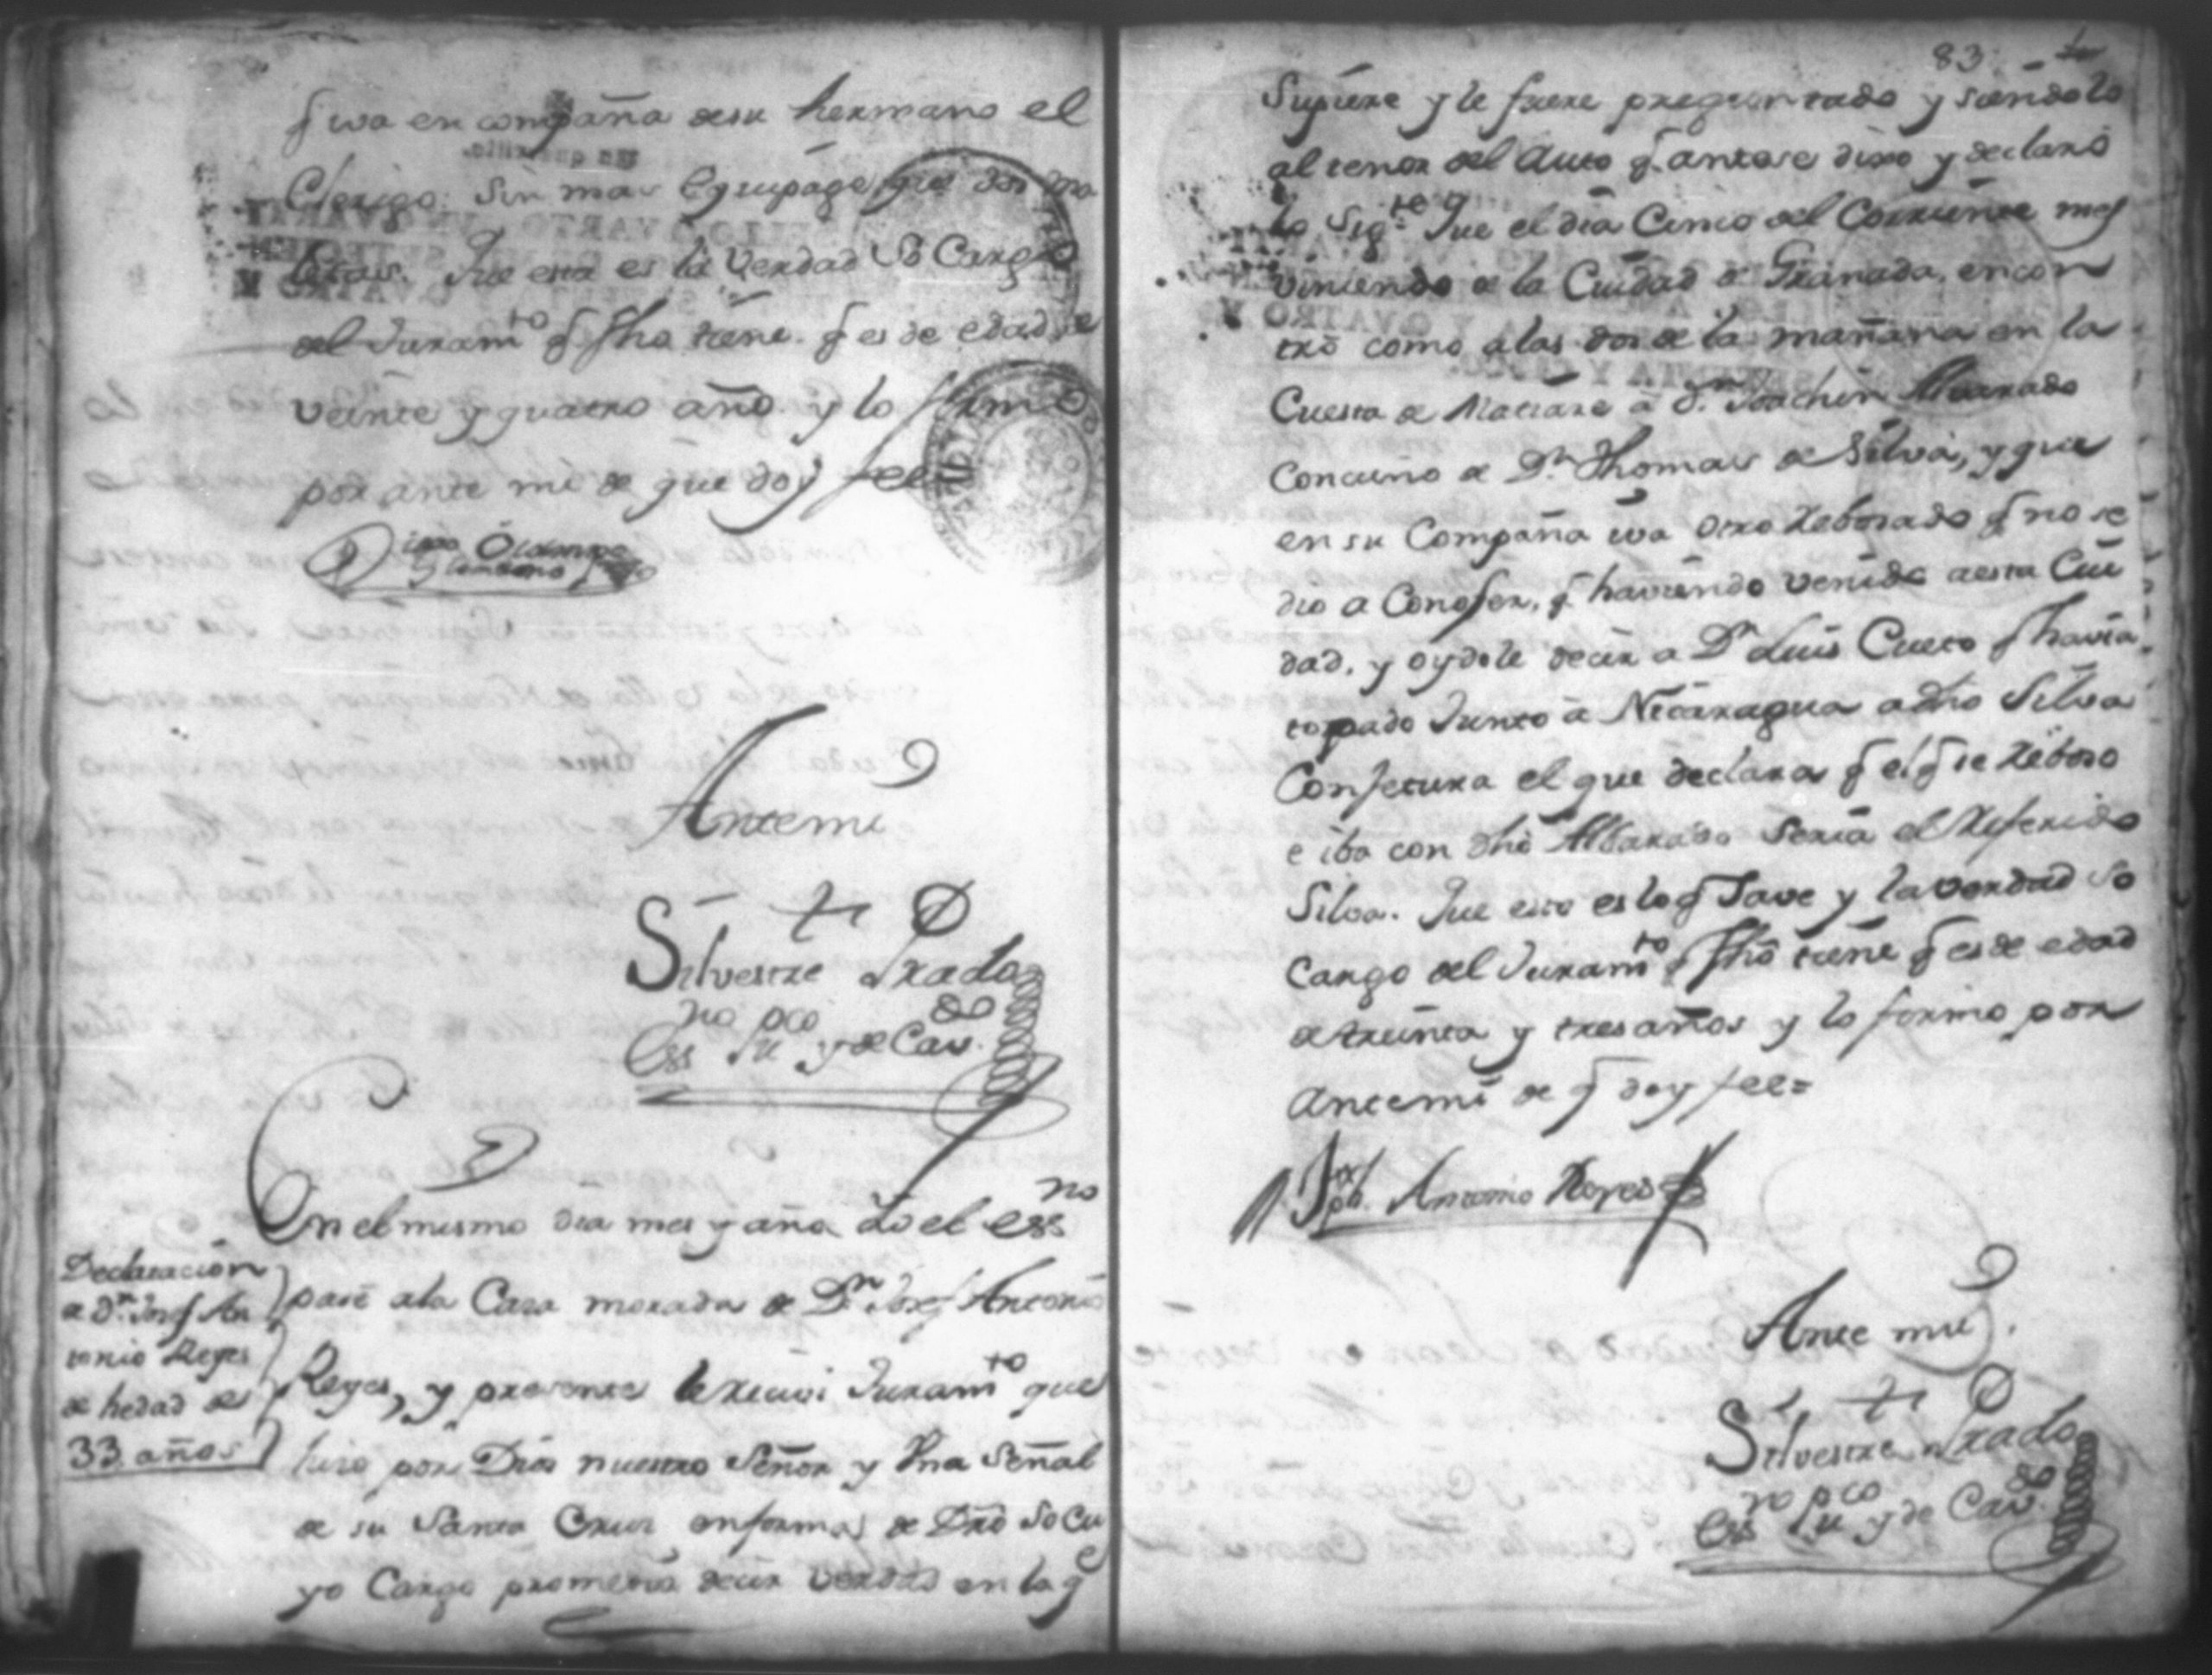 q̃ iva en compaña de su hermano el
Clerigo: Sin mas Equipage que dos
letas. Que esta es la Verdad so Cargo
del Juram.to q̃ fho tiene. q̃ es de edad de
veinte y quatro año. y lo firmó
por ante mi de que doy fee
Ante mi
Silvestre Prado
Ess.no pu.co y de Cav.do
En el mismo dia mes y año Yo el ess.no
Declaracion
de D.n Josef An
tonio Reyes
de hedad de
33 años
pasé a la Casa morada de D.n Josef Antonio
Reyes, y presente le recivi Juram.to que
hizo por Dios nuestro Señor y Vna Señal
de su Santa Cruz en forma de Dró so cu
yo Cargo prometió decir verdad en lo q̃
83
Supiere y le fuere preguntado y siendolo
al tenor del Auto q̃ antese dixo y declaró
lo Sig.te Que el dia Cinco del Corriente mes
viniendo de la Ciudad de Granada, encon
tró como a las dos de la mañana en la
Cuesta de Matiare a D.n Joachin Alvarado
Concuño de D.n Thomas de Silva, y que
en su Compaña iva otro Rebosado q̃ no se
dio a Conoser, q̃ haviendo venido a esta Ciu
dad, y oydole decir a D.n Luis Cueto q̃ havia
topado Junto à Nicaragua a dho Silva
Conjetura el que declara q̃ el q̃ se Reboso
e iba con dho Albarado Seria el Referido
Silva. Que esto es lo q̃ Save y la verdad so
cargo del Juram.to q̃ fho tiene q̃ es de edad
de treinta y tres años y lo firmo por
Antemi de q̃ doy fee=
Jph. Antonio Reyes
Ante mi.
Silvestre Prado
Ess.no pu.co y de Cav.do